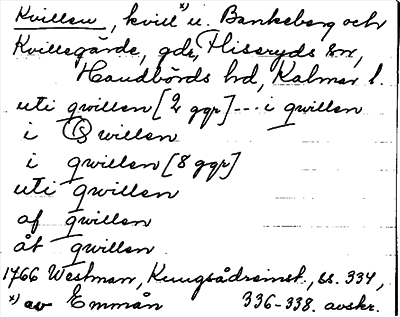 Kvillen, kvill *) u. Bankeberg och
Kvillegärde, gdr, Fliseryds sn,
Handbörds hd, Kalmar l.
uti qwillen [2 ggr] --- i qwillen
i Qwillen
i qwillen [8 ggr]
uti qwillen
af qwillen
åt qwillen
1766 Westman, Kungsådreinst., ss. 334,
*) av Emmån 336-338. avskr.